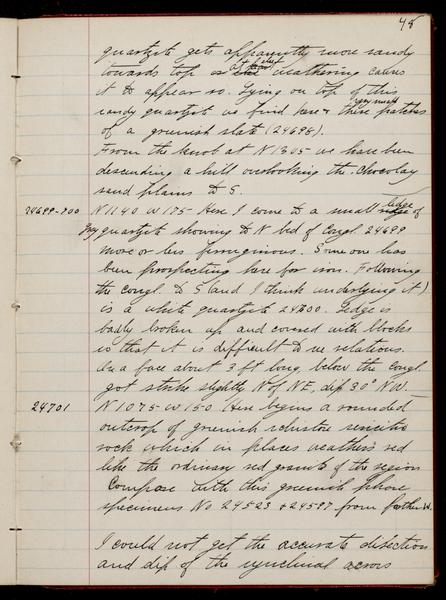 48
quartzite gets apparently more sandy
towards top or at least weathering causes
it to appear so. Lying on top of this
sandy quartzite we find here & there patches
of a greenish slate (24698).
From the knob at N1305 we have been
descending a hill overlooking the Chocolay
sand plains to S.
24699-700 N1140 W175 Here I come to a small ledge of
quartzite showing to N bed of Congl. 24699
more or less ferruginous. Some one has
been prospecting here for iron. Following
the congl. to S (and I think underlying it)
is a white quartzite 24700. Ledge is
badly broken up and covered with blocks
so that it is difficult to see relations.
On a face about 3 ft long, below the Congl.
got strike slightly N of NE, dip 30° NW.
24701 N1075 W150. Here begins a rounded
outcrop of greenish schistose sericitic
rock which in places weathers red
like the ordinary red granite of the region
Compare with this greenish phase
specimens No 24523 & 24587 from farther W.
I could not get the accurate direction
and dip of the synclinal across